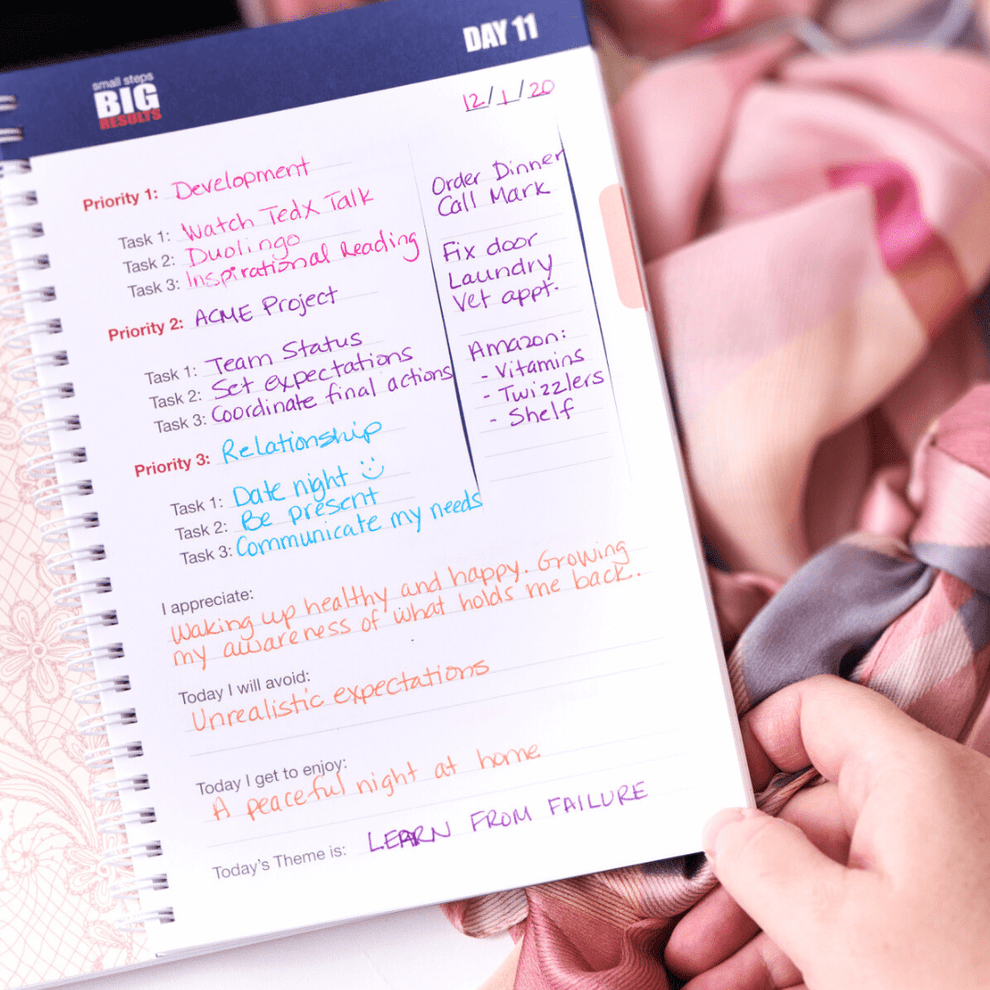 small steps
BIG
RESULTS
DAY 11
12/1/20
Priority 1: Development
Task 1: Watch TedX Talk
Task 2: Duolingo
Task 3: Inspirational Reading
Priority 2: ACME Project
Task 1: Team Status
Task 2: Set expectations
Task 3: Coordinate final actions
Priority 3: Relationship
Task 1: Date night
Task 2: Be present
Task 3: Communicate my needs
Order Dinner
Call Mark
Fix door
Laundry
Vet appt.
Amazon:
- Vitamins
- Twizzlers
- Shelf
I appreciate:
Waking up healthy and happy. Growing
my awareness of what holds me back.
Today I will avoid:
Unrealistic expectations
Today I get to enjoy:
A peaceful night at home
Today's Theme is: LEARN FROM FAILURE